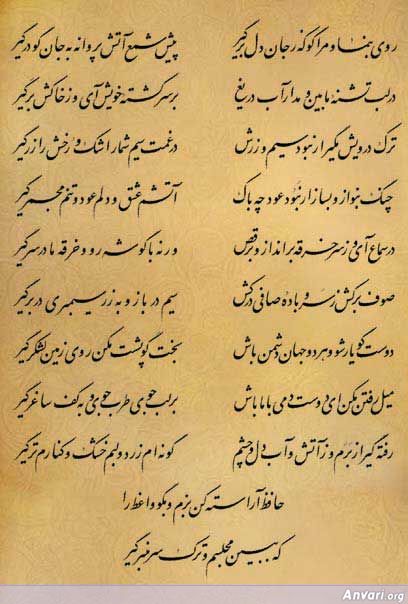 روی بنما و مرا گو که ز جان دل برگیر پیش شمع آتش پروانه به جان گو درگیر
در لب تشنهٔ ما بین و مدار آب دریغ بر سر کشته خویش آی و ز خاکش برگیر
ترک درویش مگیر ار نبود سیم و زرش در غمت سیم شمار اشک و رخش را زر گیر
چنگ بنواز و بساز ار نبود عود چه باک آتشم عشق و دلم عود و تنم مجمر گیر
در سماع آی و ز سر خرقه برانداز و برقص ور نه با گوشه رو و خرقه ما در سر گیر
صوف برکش ز سر و باده صافی درکش سیم درباز و به زر سیمبری در بر گیر
دوست گو یار شو و هر دو جهان دشمن باش بخت گو پشت مکن روی زمین لشکر گیر
میل رفتن مکن ای دوست دمی با ما باش بر لب جوی طرب جوی و به کف ساغر گیر
رفته گیر از برم و ز آتش و آب دل و چشم گونه ام زرد و لبم خشک و کنارم تر گیر
حافظ آراسته کن بزم و بگو واعظ را
که ببین مجلسم و ترک سر منبر گیر
Anvari.org